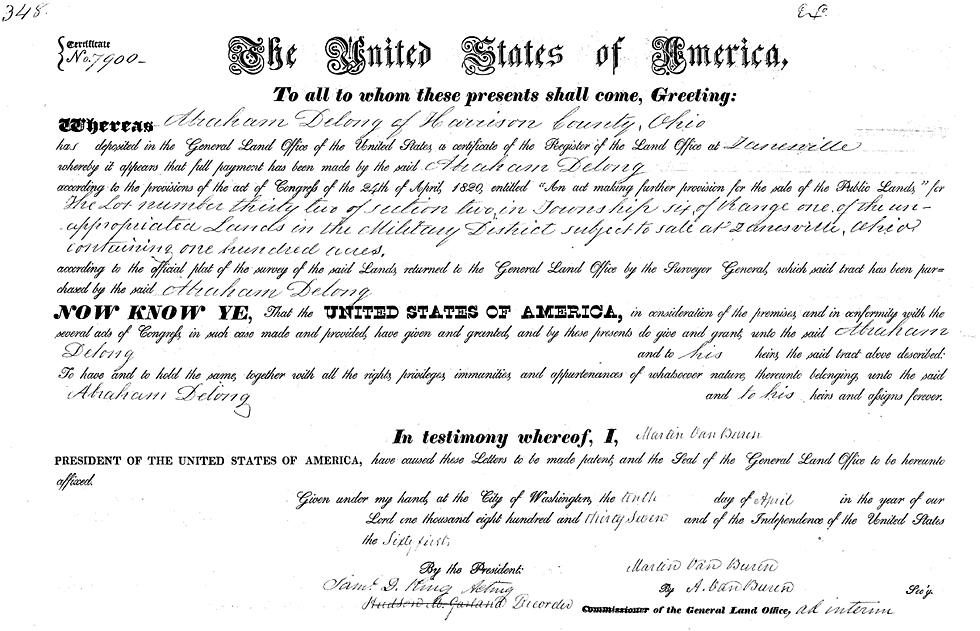 348.
Certificate
No. 7900
The United States of America,
To all to whom these presents shall come, Greeting:
Whereas Abraham Delong of Harrison County, Ohio
has deposited in the General Land Office of the United States, a certificate of the Register of the Land Office at Zanesville
whereby it appears that full payment has been made by the said Abraham Delong
according to the provisions of the act of Congress of the 24th of April, 1820, entitled "An act making further provision for the sale of the Public Lands," for
the Lot number thirty two of section two, in Township six, of Range one, of the un-
appropriated Lands in the Military District subject to sale at Zanesville, Ohio,
containing one hundred acres,
according to the official plat of the survey of the said Lands, returned to the General Land Office by the Surveyor General, which said tract has been pur-
chased by the said Abraham Delong
NOW KNOW YE, That the UNITED STATES OF AMERICA, in consideration of the premises, and in conformity with the
several acts of Congress, in such case made and provided, have given and granted, and by these presents do give and grant, unto the said Abraham
Delong and to his heirs, the said tract above described:
To have and to hold the same, together with all the rights, privileges, immunities, and appurtenances of whatsoever nature, thereunto belonging, unto the said
Abraham Delong and to his heirs and assigns forever.
In testimony whereof, I, Martin Van Buren
PRESIDENT OF THE UNITED STATES OF AMERICA, have caused these Letters to be made patent, and the Seal of the General Land Office to be hereunto
affixed.
Given under my hand, at the City of Washington, the tenth day of April in the year of our
Lord one thousand eight hundred and thirty seven and of the Independence of the United States
the Sixty first.
By the President: Martin Van Buren
By A. Van Buren Sec'y.
Saml. D. King Acting
Hudson M. Garland Recorder Commissioner of the General Land Office, ad interim